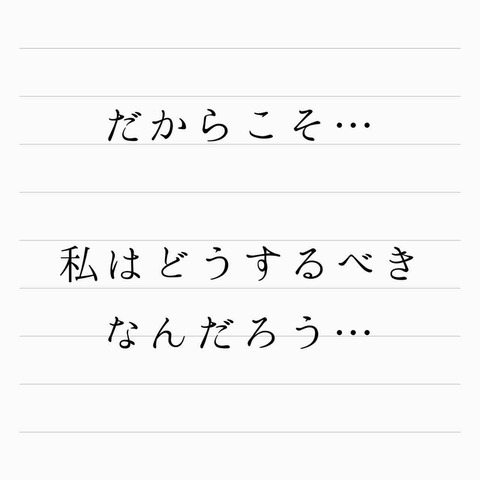 だからこそ…
私はどうするべき
なんだろう…